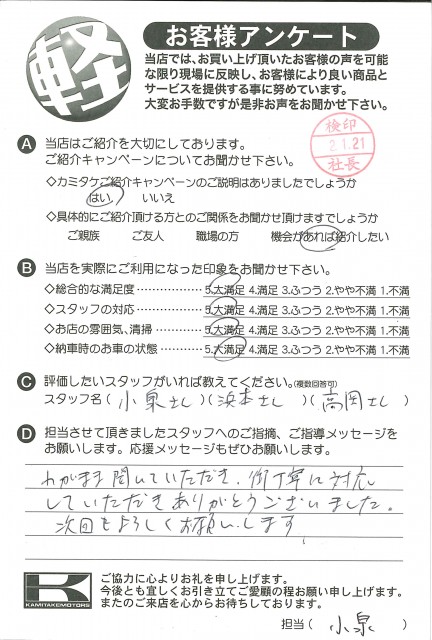 軽
お客様アンケート
当店では、お買い上げ頂いたお客様の声を可能
な限り現場に反映し、お客様により良い商品と
サービスを提供する事に努めています。
大変お手数ですが是非お声をお聞かせ下さい。
検印
2.1.21
社長
A 当店はご紹介を大切にしております。
ご紹介キャンペーンについてお聞かせ下さい。
◇カミタケご紹介キャンペーンのご説明はありましたでしょうか
はい いいえ
◇具体的にご紹介頂ける方とのご関係をお聞かせ頂けますでしょうか
ご親族 ご友人 職場の方 機会があれば紹介したい
B 当店を実際にご利用になった印象をお聞かせ下さい。
◇総合的な満足度 5.大満足 4.満足 3.ふつう 2.やや不満 1.不満
◇スタッフの対応 5.大満足 4.満足 3.ふつう 2.やや不満 1.不満
◇お店の雰囲気、清掃 5.大満足 4.満足 3.ふつう 2.やや不満 1.不満
◇納車時のお車の状態 5.大満足 4.満足 3.ふつう 2.やや不満 1.不満
C 評価したいスタッフがいれば教えてください。(複数回答可)
スタッフ名 ( 小泉さん ) ( 浜本さん ) ( 高岡さん )
D 担当させて頂きましたスタッフへのご指摘、ご指導メッセージを
お願いします。応援メッセージもぜひお願いします。
わがまま聞いていただき、御丁寧に対応
していただきありがとうございました。
次回もよろしくお願いします
K
KAMITAKEMOTORS
ご協力に心よりお礼を申し上げます。
今後とも宜しくお引き立てご愛顧の程お願い申し上げます。
またのご来店を心からお待ちしております。
担当 ( 小泉 )